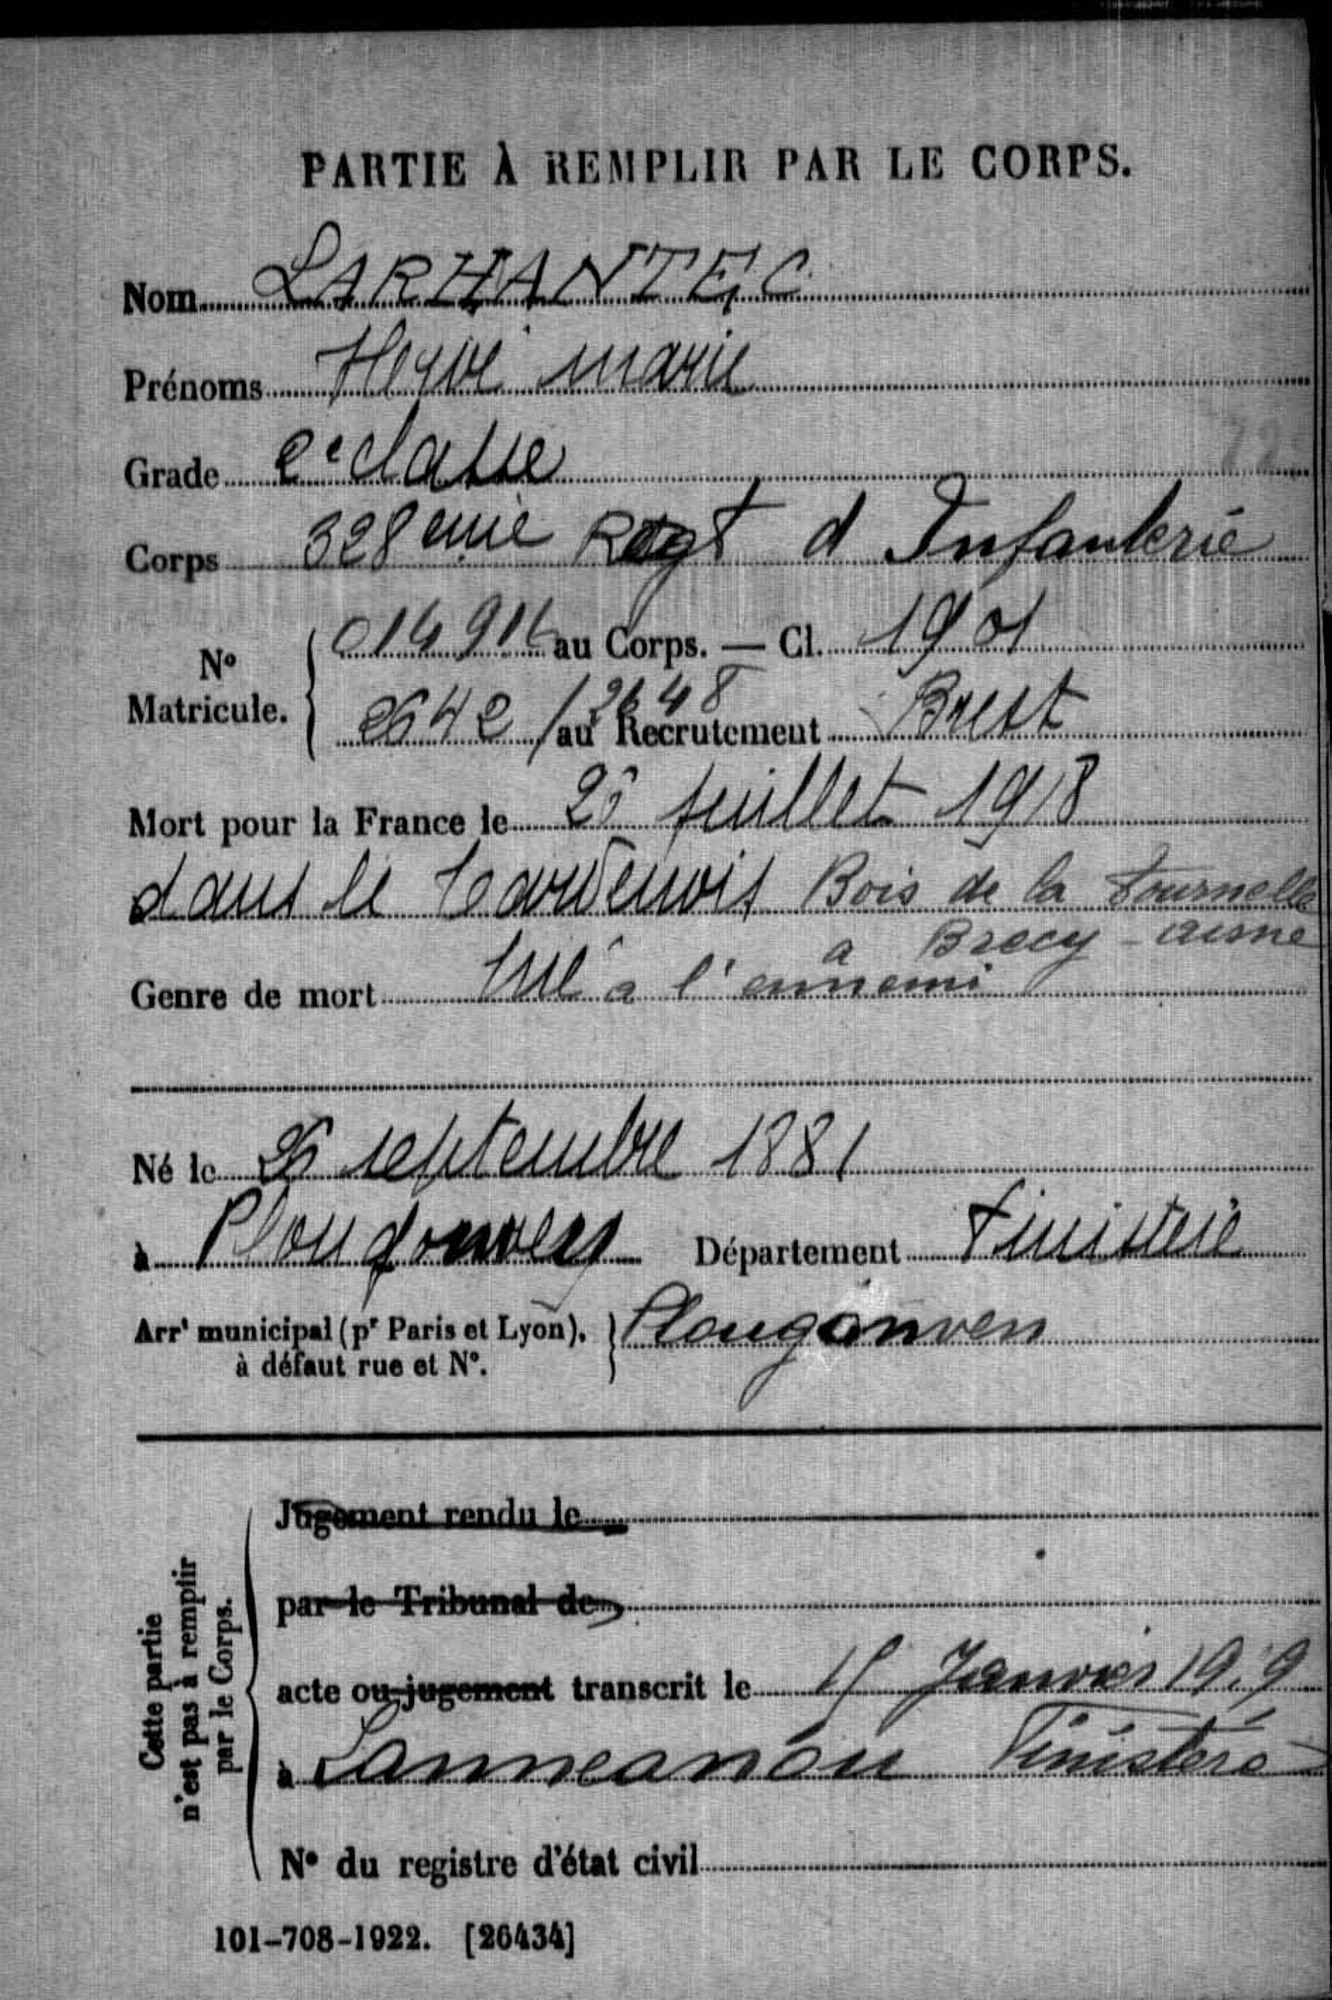 PARTIE À REMPLIR PAR LE CORPS.
Nom LARHANTEC
Prénoms Hervé marie
Grade 2e classe
Corps 328eme Regt d Infanterie
No Matricule. au Corps. — Cl. 1901
2642 / 2648 au Recrutement Brest
Mort pour la France le juillet 1918
dans le Tardenois Bois de la Tournelle
a Brecy - aisne
Genre de mort tué a l'ennemi
Né le 26 septembre 1881
à Département Finistère
Arrt municipal (pr Paris et Lyon), à défaut rue et No. Plougonven
Cette partie n'est pas à remplir par le Corps.
Jugement rendu le
par le Tribunal de
acte ou jugement transcrit le 15 Janvier 1919
à Lanneanou Finistère
No du registre d'état civil
101-708-1922. [26434]